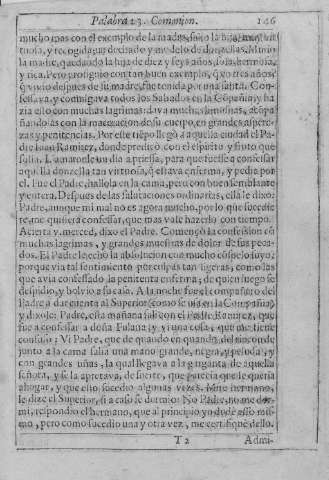 Palabra 23. Comunion. 146
mucho mas con el exemplo de la madre, salio la hija muy vir
tuosa, y recogida, que dechado y modelo de donzellas. Murio
la madre, quedando la hija de diez y seys años, sola, hermosa,
y rica. Pero prosiguio con tan buen exemplo, q̃ en tres años, q̃
q̃ viuio despues de su madre, fue tenida por una santa. Con-
fessaua, y comulgaua todos los Sabados en la Cõpañia, y ha
zia ello con muchas lagrimas: daua muchas limosnas, acõpa
ñandolas con la maceracion de su cuerpo, en grandes asperé-
zas, y penitencias. Por este tiẽpo llegò a aquella ciudad el Pa-
dre Iuan Ramirez, donde predicò con el espiritu y fruto que
solia. Llamaronle un dia a priessa, para que fuesse a confessar
aquella donzella tan virtuosa, q̃ estaua enferma, y pedia por
el. Fue el Padre, hallola en la cama, pero con buen semblante
y entera. Despues de las salutaciones ordinarias, ella le dixo:
Padre, aunque mi mal no es agora mucho, por lo que sucedie
re, me quisiera confessar, que mas vale hazerlo con tiempo.
Acierta v. merced, dixo el Padre. Començò la confession cõ
muchas lagrimas, y grandes muestras de dolor de sus peca-
dos. El Padre le echo la absolucion con mucho cõsuelo suyo;
porque via tal sentimiento por culpas tan ligeras, como las
que auia confessado la penitente enferma; de quien luego se
despidio, y boluio a su casa. A la noche fue el compañero del
Padre a dar cuenta al Superior (como se usa en la Compañia)
y dixole: Padre, esta mañana salì con el Padre Ramirez, que
fue a confessar a doña Fulana, y vi una cosa, que me tiene
confuso; Vi Padre, que de quando en quando, del rincon de
junto a la cama salia una mano grande, negra, y peluda, y
con grandes uñas, la qual llegaua a la garganta de aquella
señora, y se la apretaua, de suerte, que parecia que le queria
ahogar, y que esto sucedio algunas vezes. Mire hermano,
le dize el Superior, si a caso se durmio? No Padre, no me dor-
mi, respondio el hermano, que al principio yo dudè esso mis-
mo, pero como sucedio una y otra vez, me certifiquè dello.
T 2 Admi-